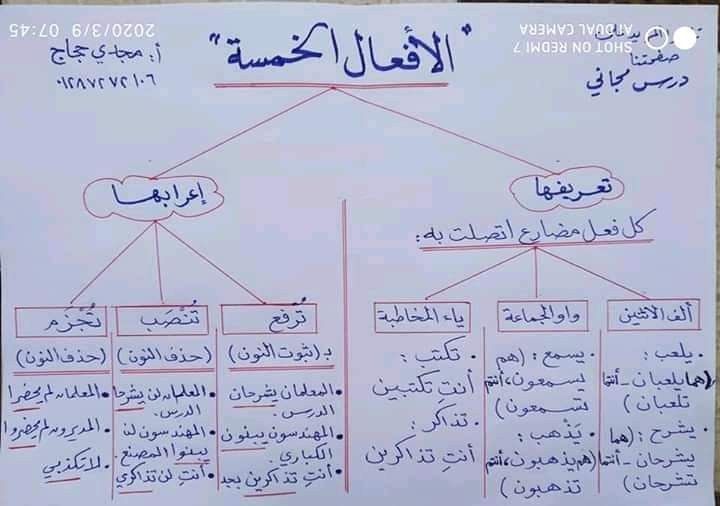 2020/3/9 07:45
SHOT ON REDMI 7
AI DUAL CAMERA
"الأفعال الخمسة"
أ: مجدي حجاج
٠١٢٨٧٢٧٢١٠٦
صفحتنا
درس مجاني
تعريفها
كل فعل مضارع اتصلت به:
ألف الاثنين
• يلعب:
(هما يلعبان - أنتما
تلعبان)
• يشرح: (هما
يشرحان - أنتما
تشرحان)
واو الجماعة
• يسمع: (هم
يسمعون، أنتم
تسمعون)
• يَذْهب:
(هم يذهبون، أنتم
تذهبون)
ياء المخاطبة
• تكتب:
أنتِ تكتبين
• تذاكر:
أنتِ تذاكرين
إعرابها
تُرفع
بـ (ثبوت النون)
• المعلمان يشرحان
الدرس.
• المهندسون يبنون
الكباري.
• أنتِ تذاكرين بجد
تُنْصَب
(حذف النون)
• المعلمان لن يشرحا
الدرس.
• المهندسون لن
يبنوا المصنع.
• أنتِ لن تذاكري
تُجْزَم
(حذف النون)
• المعلمان لم يحضرا
• المديرون لم يحضروا
• لا تكذبي